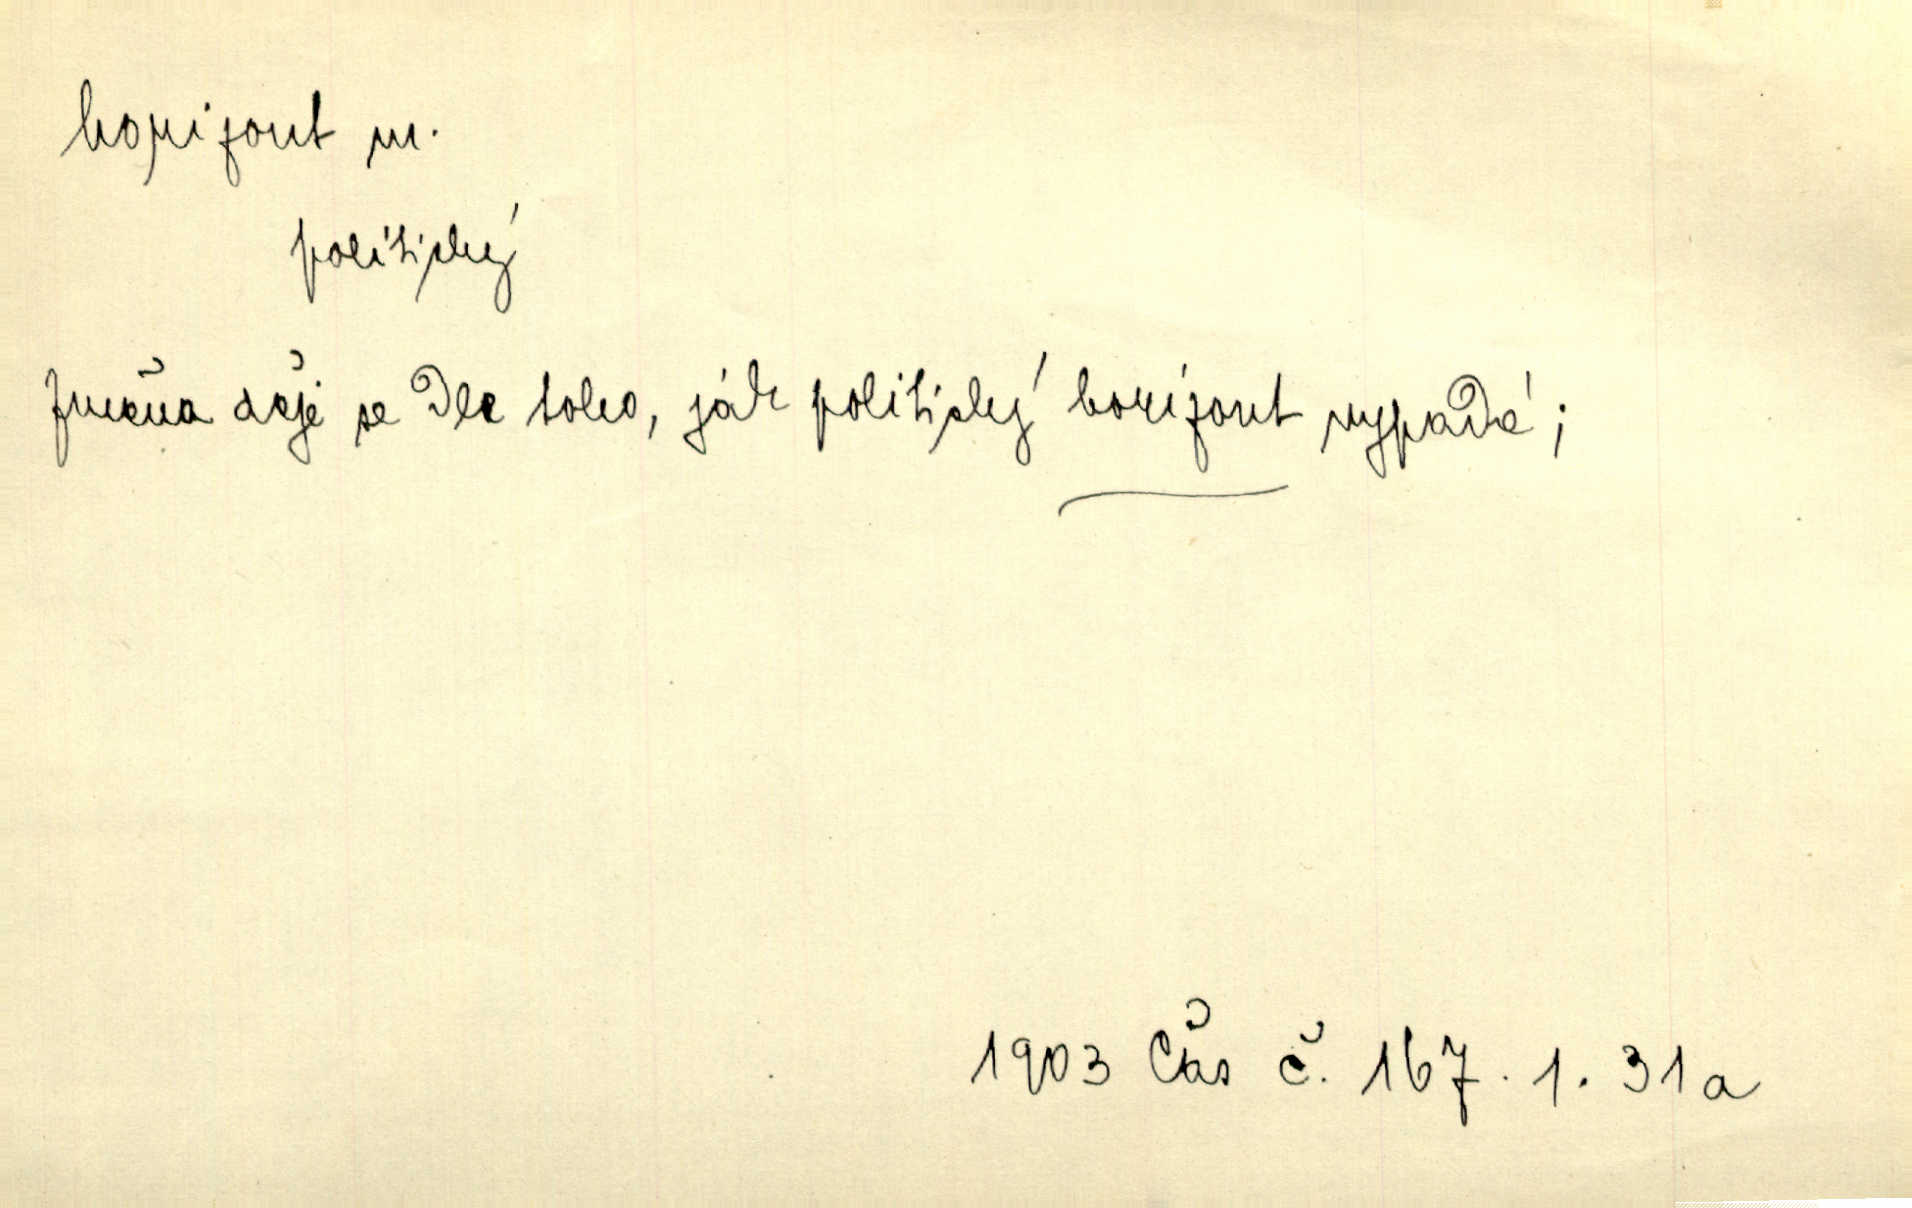 horizont m.
politický
změna děje se dle toho, ják politický horizont vypadá;
1903 Čas č. 167. 1. 31a